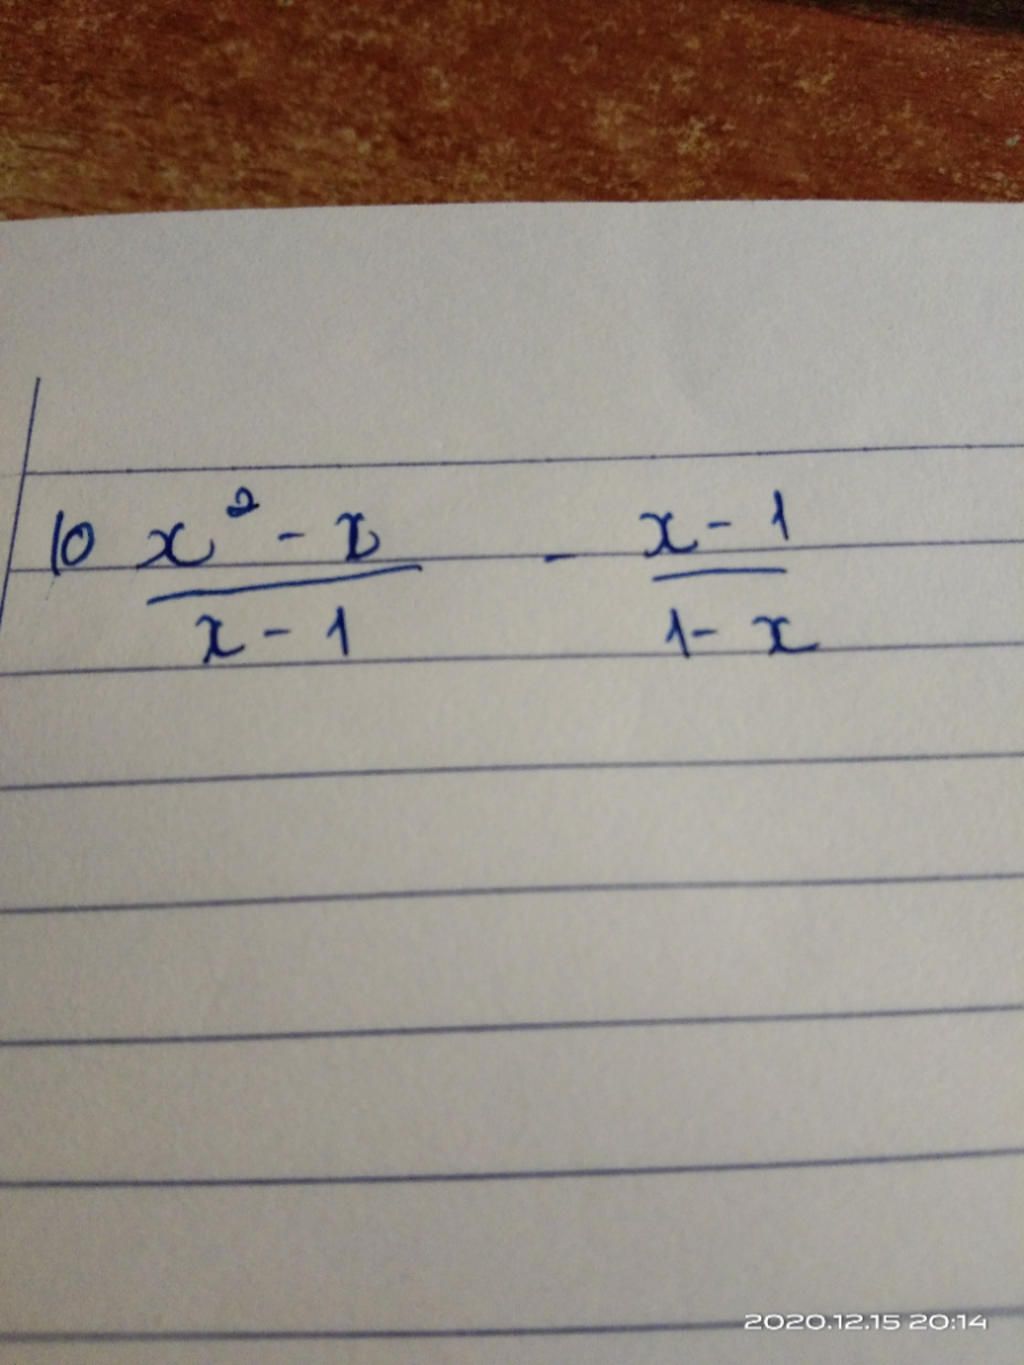 10 x² - x / x - 1 - x - 1 / 1 - x
2020.12.15 20:14